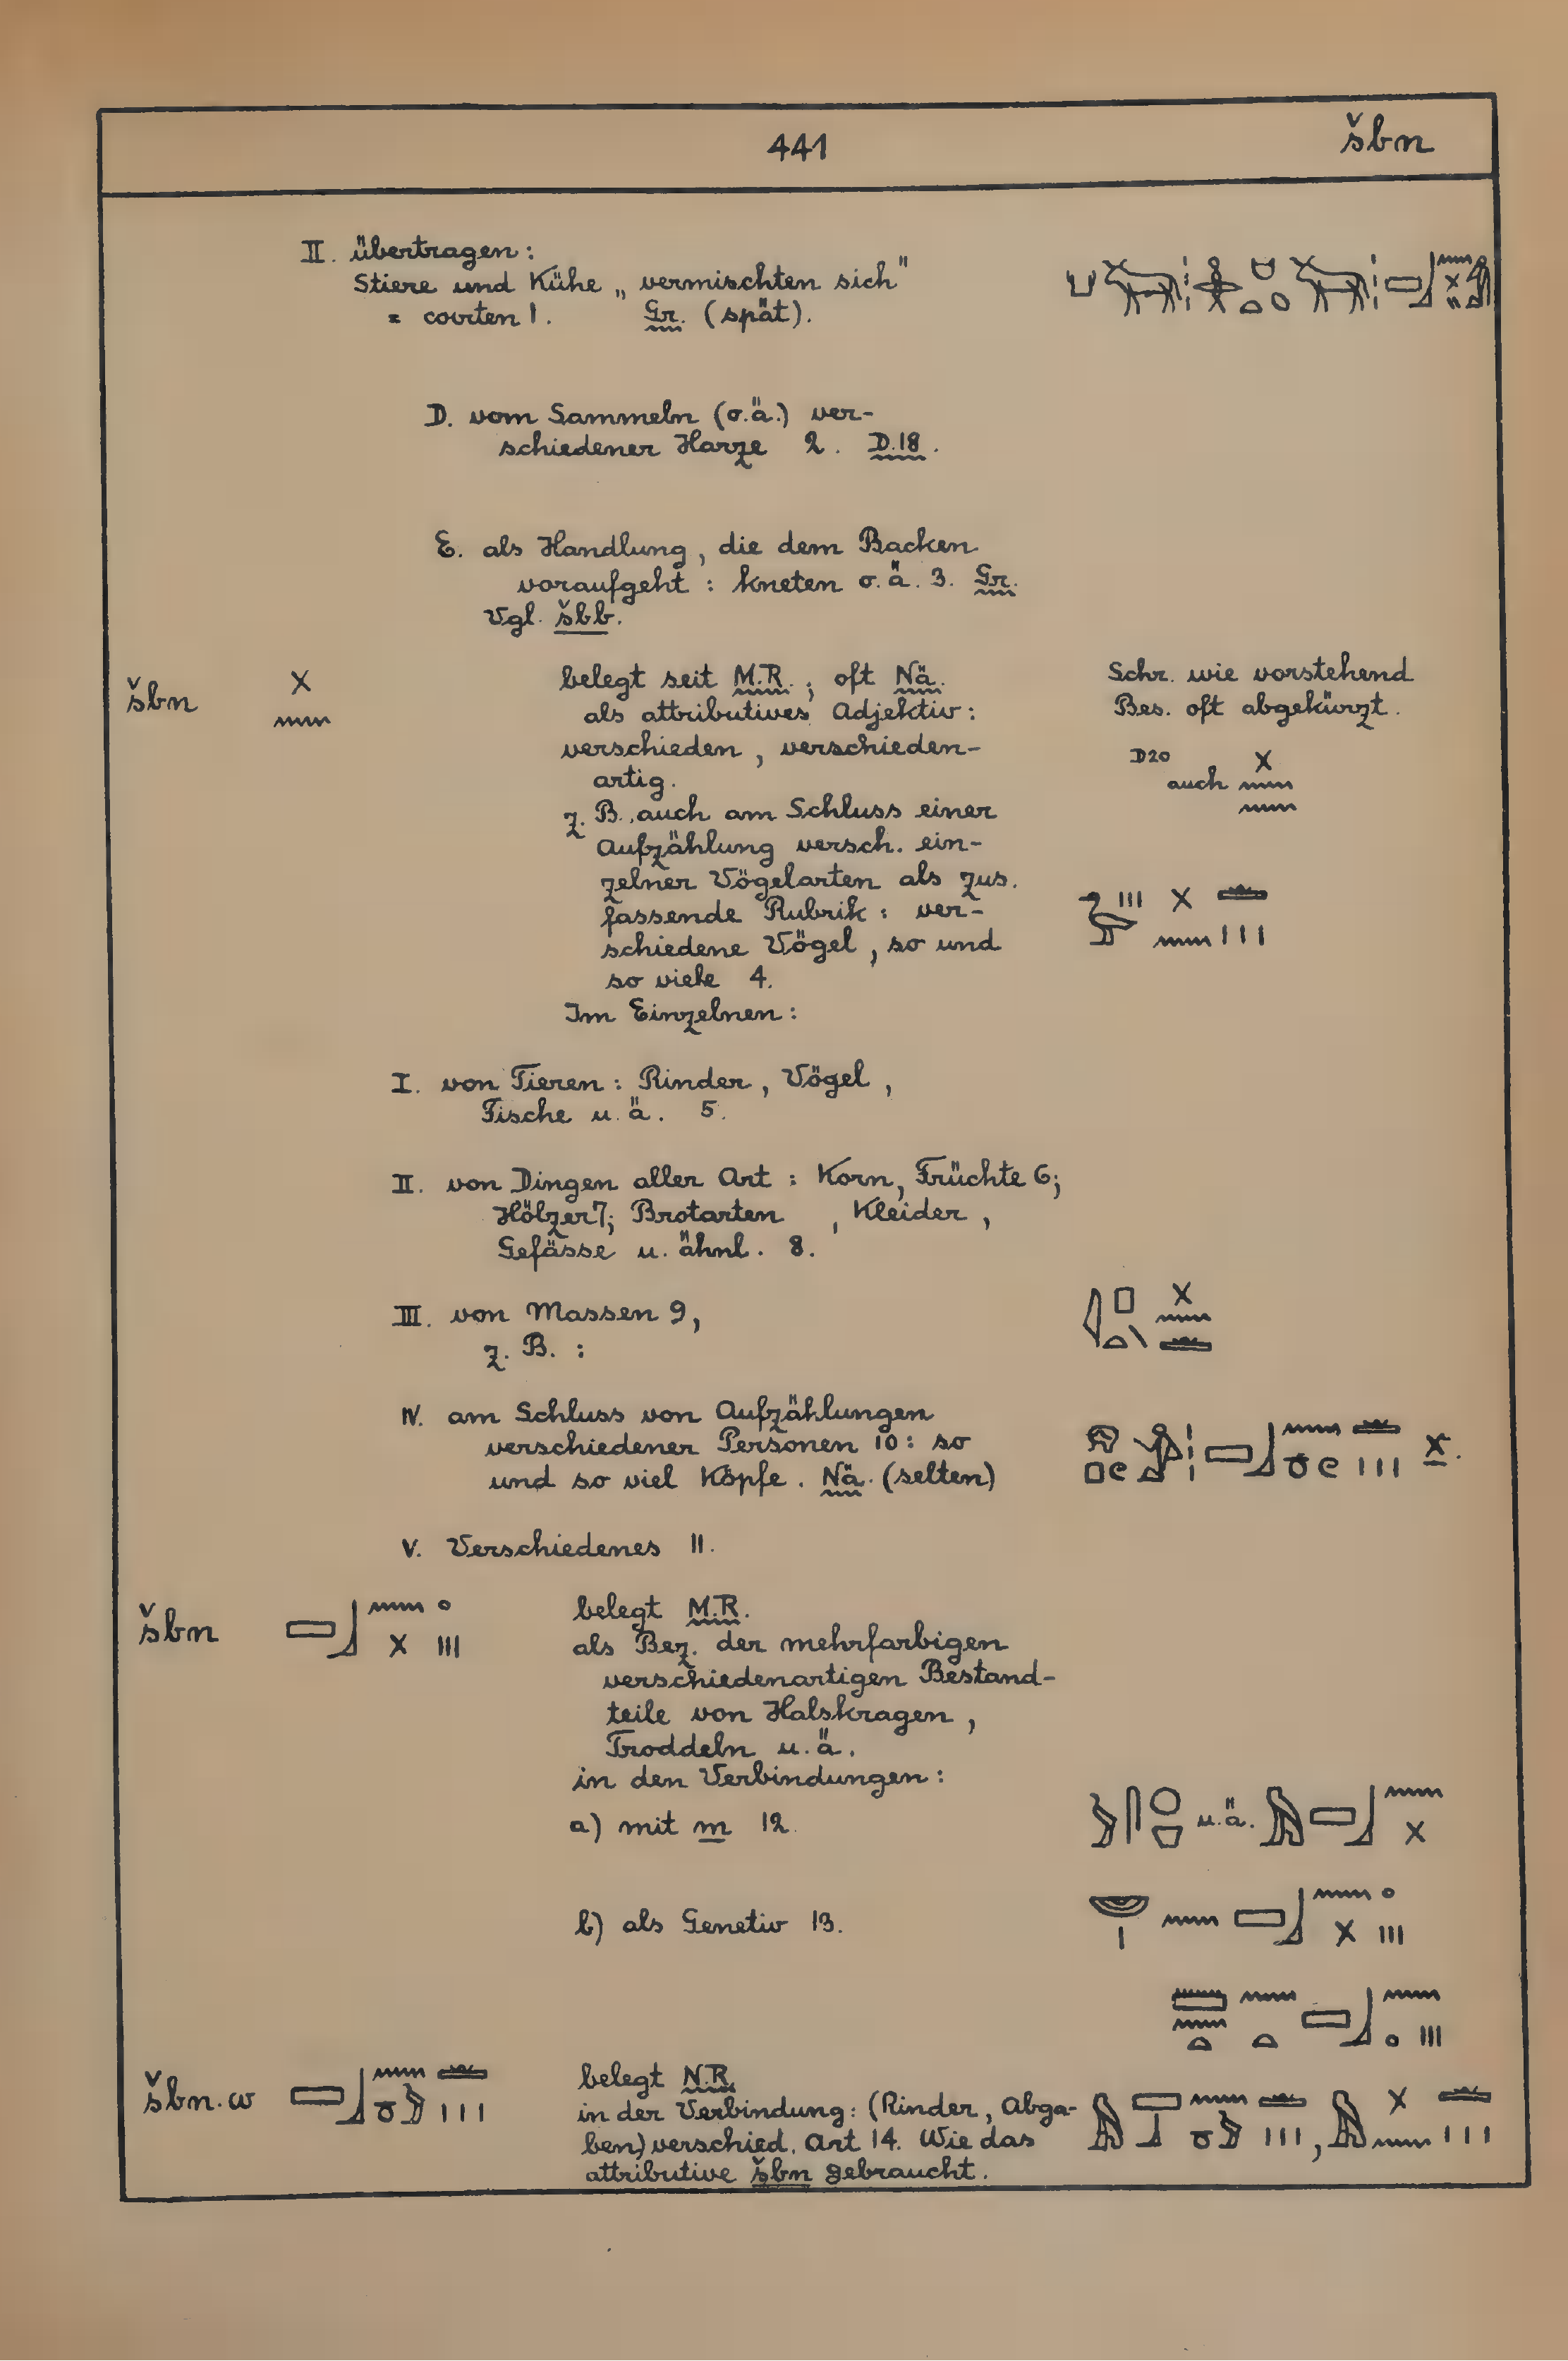 441 šbn
II. übertragen:
Stiere und Kühe „vermischten sich"
= coirten 1. Gr. (spät).
D. vom Sammeln (o.ä.) ver-
schiedener Harze 2. D.18.
E. als Handlung, die dem Backen
voraufgeht: kneten o.ä. 3. Gr.
Vgl. šbb.
šbn
belegt seit M.R.; oft Nä.
als attributives Adjektiv:
verschieden, verschieden-
artig.
z. B. auch am Schluss einer
Aufzählung versch. ein-
zelner Vögelarten als zus.
fassende Rubrik: ver-
schiedene Vögel, so und
so viele 4.
Im Einzelnen:
Schr. wie vorstehend
Bes. oft abgekürzt.
D20
auch
I. von Tieren: Rinder, Vögel,
Fische u.ä. 5.
II. von Dingen aller Art: Korn, Früchte 6;
Hölzer 7; Brotarten, Kleider,
Gefässe u. ähnl. 8.
III. von Massen 9,
z. B.:
IV. am Schluss von Aufzählungen
verschiedener Personen 10: so
und so viel Köpfe. Nä. (selten)
x.
V. Verschiedenes 11.
šbn
belegt M.R.
als Bez. der mehrfarbigen
verschiedenartigen Bestand-
teile von Halskragen,
Troddeln u.ä.
in den Verbindungen:
a) mit m 12.
u.ä.
b) als Genetiv 13.
šbn.w
belegt N.R.
in der Verbindung: (Rinder, Abga-
ben) verschied. Art 14. Wie das
attributive šbn gebraucht.